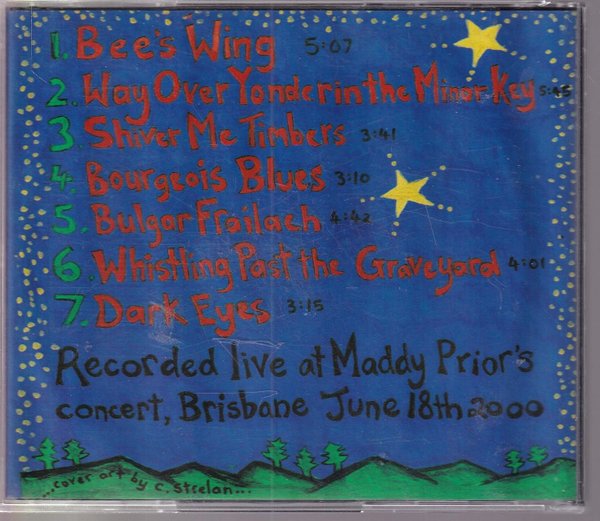 1. Bee's Wing 5:07
2. Way Over Yonder in the Minor Key 5:45
3 Shiver Me Timbers 3:41
4. Bourgeois Blues 3:10
5. Bulgar Frailach 4:42
6. Whistling Past the Graveyard 4:01
7. Dark Eyes 3:15
Recorded live at Maddy Prior's
concert, Brisbane June 18th 2000
...cover art by C. Steelan...